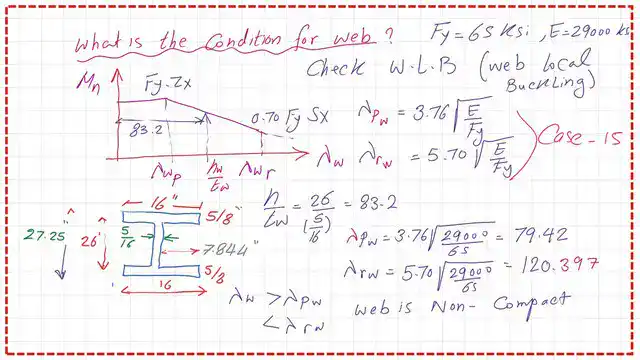 What is the Condition for web?
Fy=65 ksi, E=29000 ks
Check W.L.B (web local Buckling)
Mn
Fy.Zx
0.70 Fy Sx
83.2
λwp
hw/tw
λwr
λpw = 3.76√(E/Fy)
λw λrw = 5.70√(E/Fy)
Case-15
16"
5/8"
27.25"
26"
5/16
7.844"
5/8
16
h/tw = 26/(5/16) = 83.2
λpw = 3.76√(29000/65) = 79.42
λrw = 5.70√(29000/65) = 120.397
λw > λpw
< λrw
web is Non-Compact